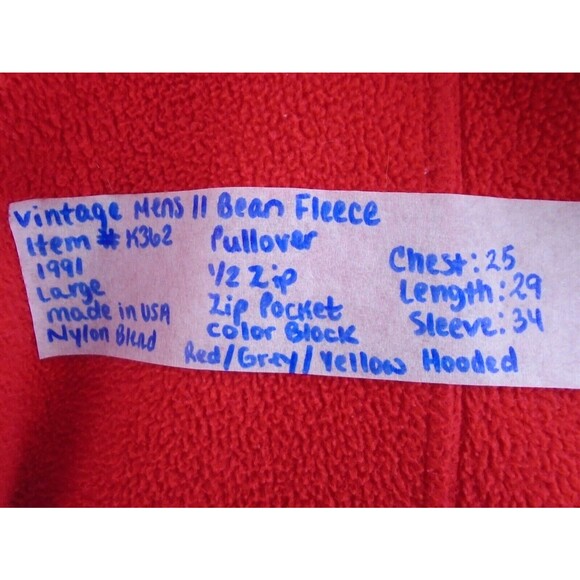 Vintage Mens ll Bean Fleece
Item # K362
1991
Large
made in USA
Nylon Blend
Pullover
1/2 Zip
Zip Pocket
Color Block
Red/Grey/Yellow Hooded
Chest: 25
Length: 29
Sleeve: 34